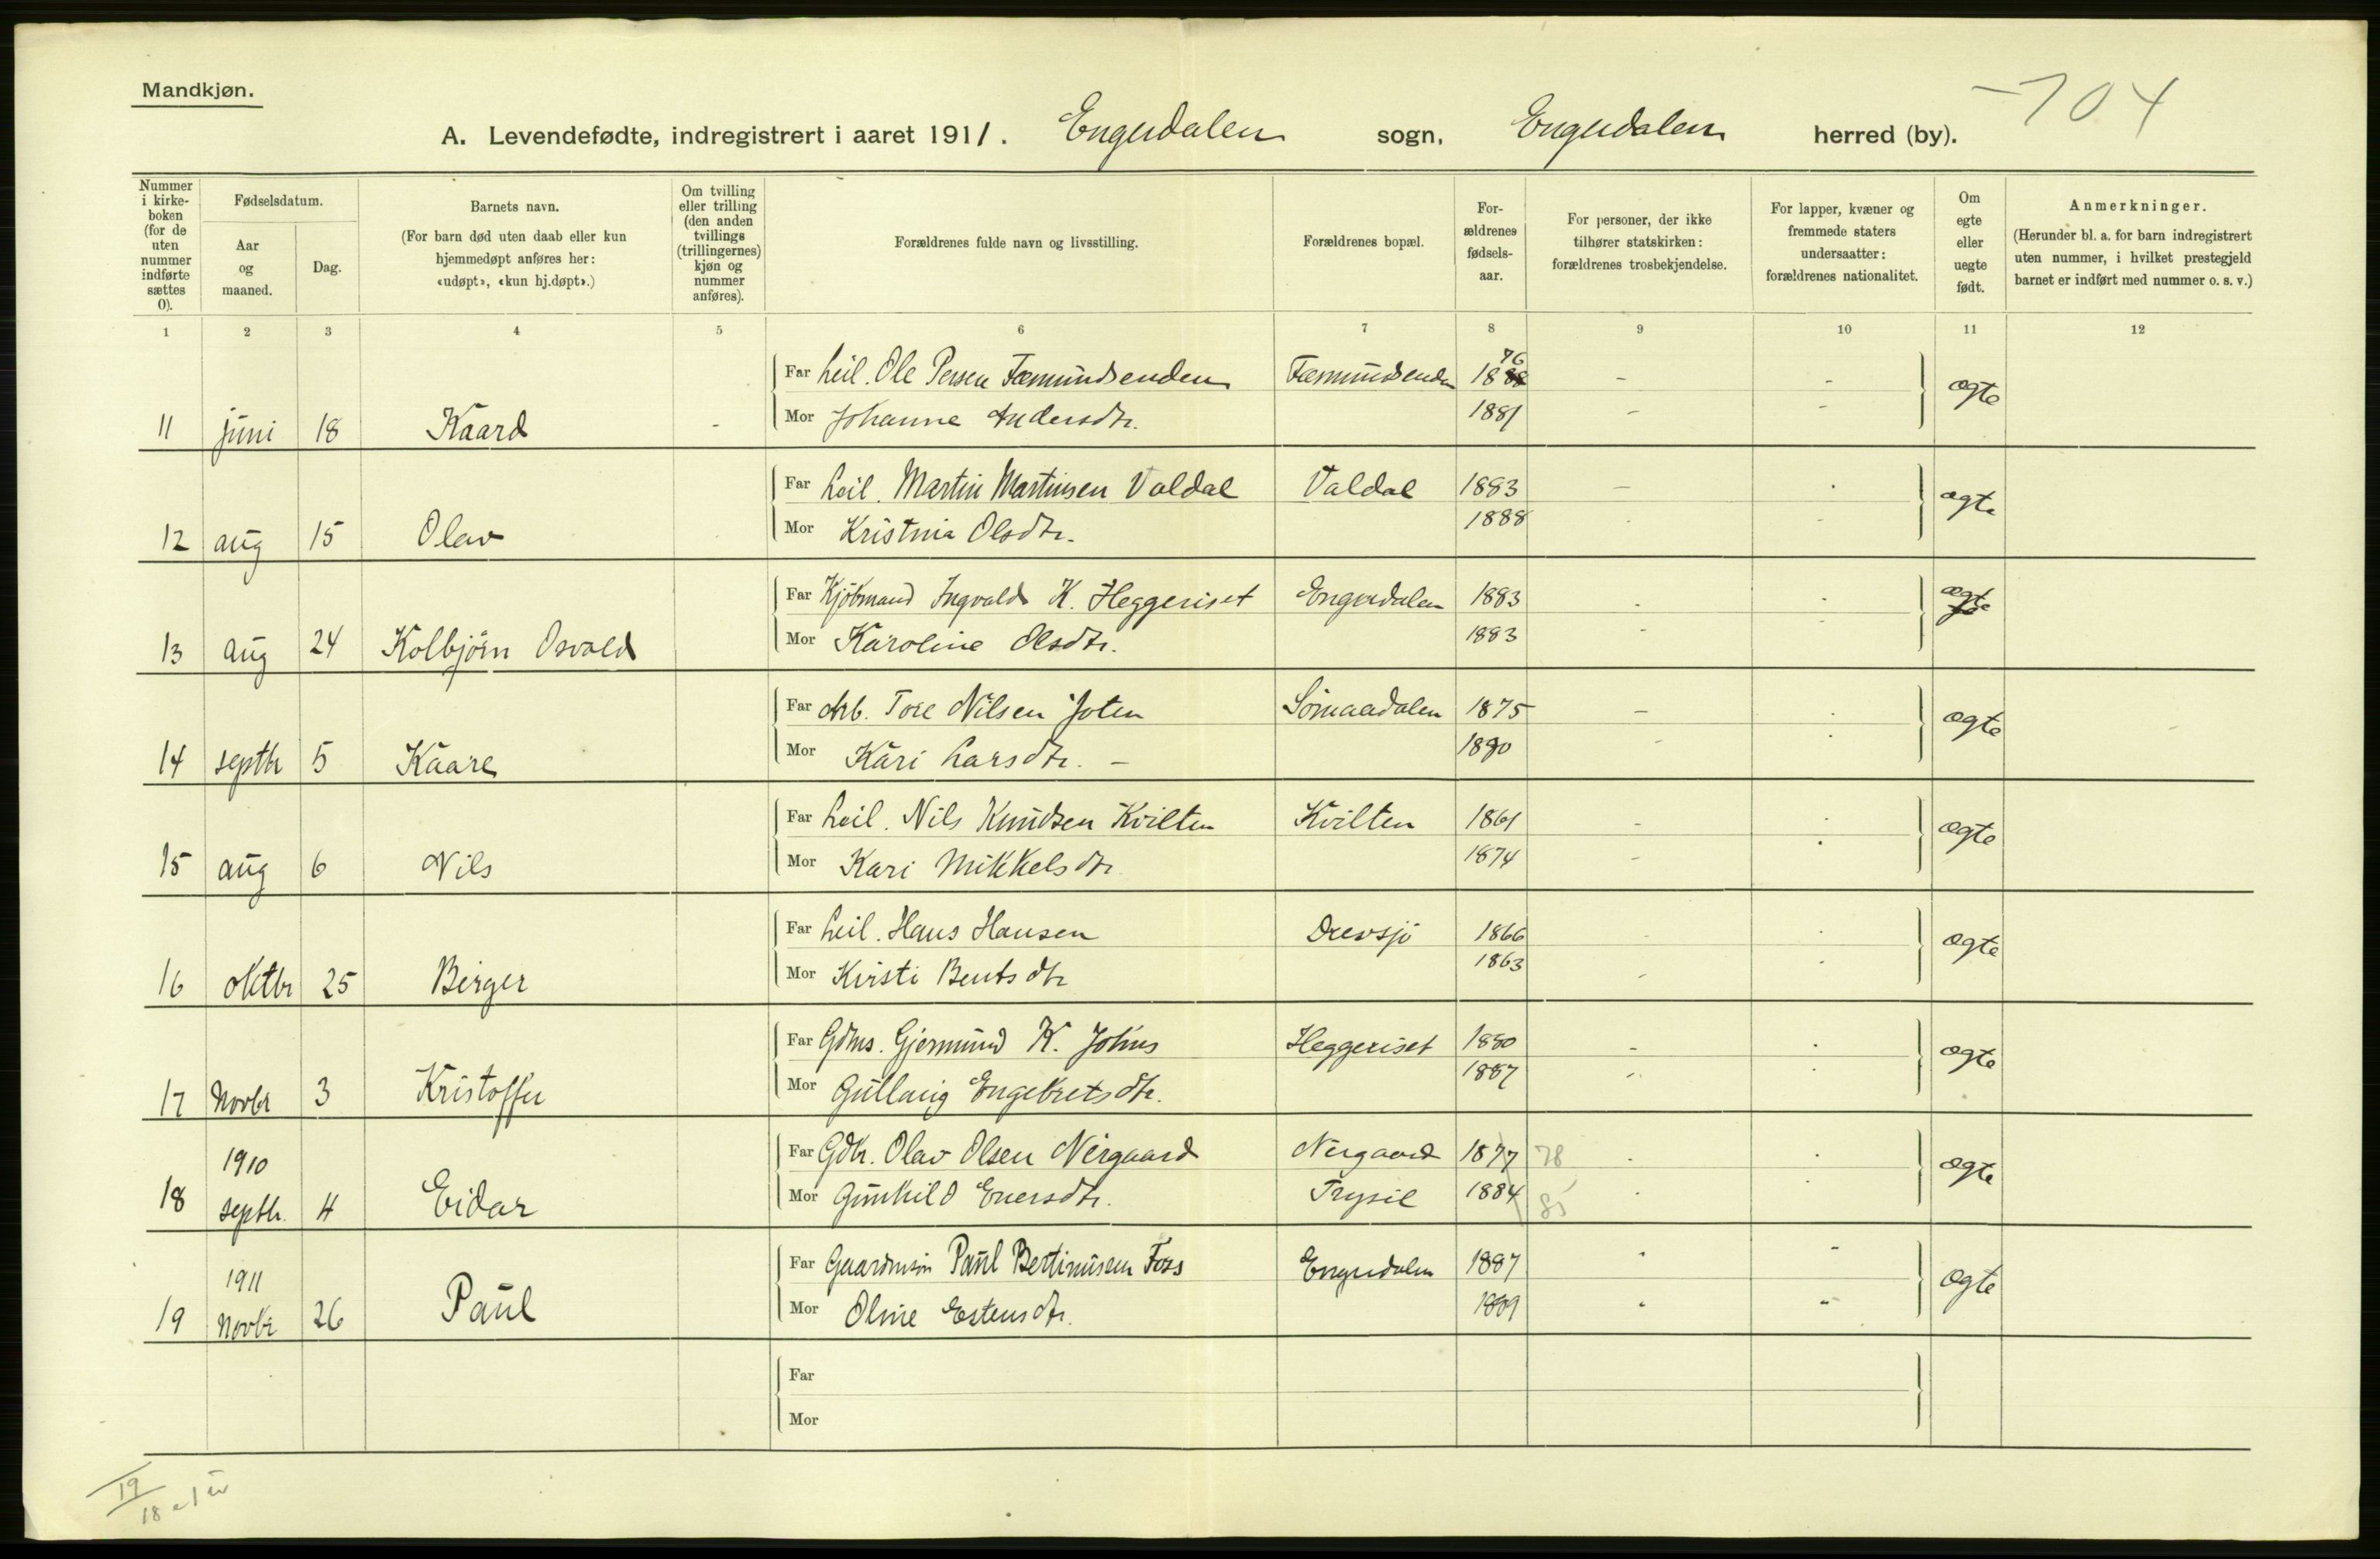 Mandkjøn.
-704
A. Levendefødte, indregistrert i aaret 1911. Engerdalen sogn, Engerdalen herred (by).
Nummer i kirke-boken (for de uten nummer indførte sættes 0).
Fødselsdatum.
Aar og maaned.
Dag.
Barnets navn.
(For barn død uten daab eller kun hjemmedøpt anføres her: «udøpt», «kun hj.døpt».)
Om tvilling eller trilling (den anden tvillings (trillingernes) kjøn og nummer anføres).
Forældrenes fulde navn og livsstilling.
Forældrenes bopæl.
For-ældrenes fødsels-aar.
For personer, der ikke tilhører statskirken: forældrenes trosbekjendelse.
For lapper, kvæner og fremmede staters undersaatter: forældrenes nationalitet.
Om egte eller uegte født.
Anmerkninger.
(Herunder bl. a. for barn indregistrert uten nummer, i hvilket prestegjeld barnet er indført med nummer o. s. v.)
1 2 3 4 5 6 7 8 9 10 11 12
Far Leil. Ole Persen Fæmundsenden Fæmundsenden 1876 - -
11 juni 18 Kaard - Mor Johanne Andersdtr. 1881 - - ægte
Far Leil. Martin Martinsen Valdal Valdal 1883 -
12 aug 15 Olav Mor Kristina Olsdtr. 1888 ægte
Far Kjöbmand Ingvald K. Heggeriset Engerdalen 1883
13 aug 24 Kolbjörn Osvald Mor Karoline Olsdtr. 1883 ægte
Far Arb. Tore Nilsen Joten Sömaadalen 1875 -
14 septbr 5 Kaare Mor Kari Larsdtr. - ægte
Far Leil. Nils Knudsen Kvilten Kvilten 1861 -
15 aug 6 Nils Mor Kari Mikkelsdtr 1874 - ægte
Far Leil. Hans Hansen Drevsjö 1866
16 oktbr 25 Birger Mor Kirsti Bentsdtr 1863 - ægte
Far Gdms. Gjermund K. Johns Heggeriset 1880 -
17 Novbr 3 Kristoffer Mor Gullaug Engebretsdtr. 1887 ægte
1910 Far Gdbr. Olav Olsen Nergaard Nergaard 1877 78
18 septbr. 4 Eidar Mor Gunhild Enersdtr. Trysil 1884 85 ægte
1911 Far Gaardmsön Paul Bertinusen Foss Engerdalen 1887 " "
19 Novbr 26 Paul Mor Oline Estensdtr. " " ægte
Far
Mor
19
18